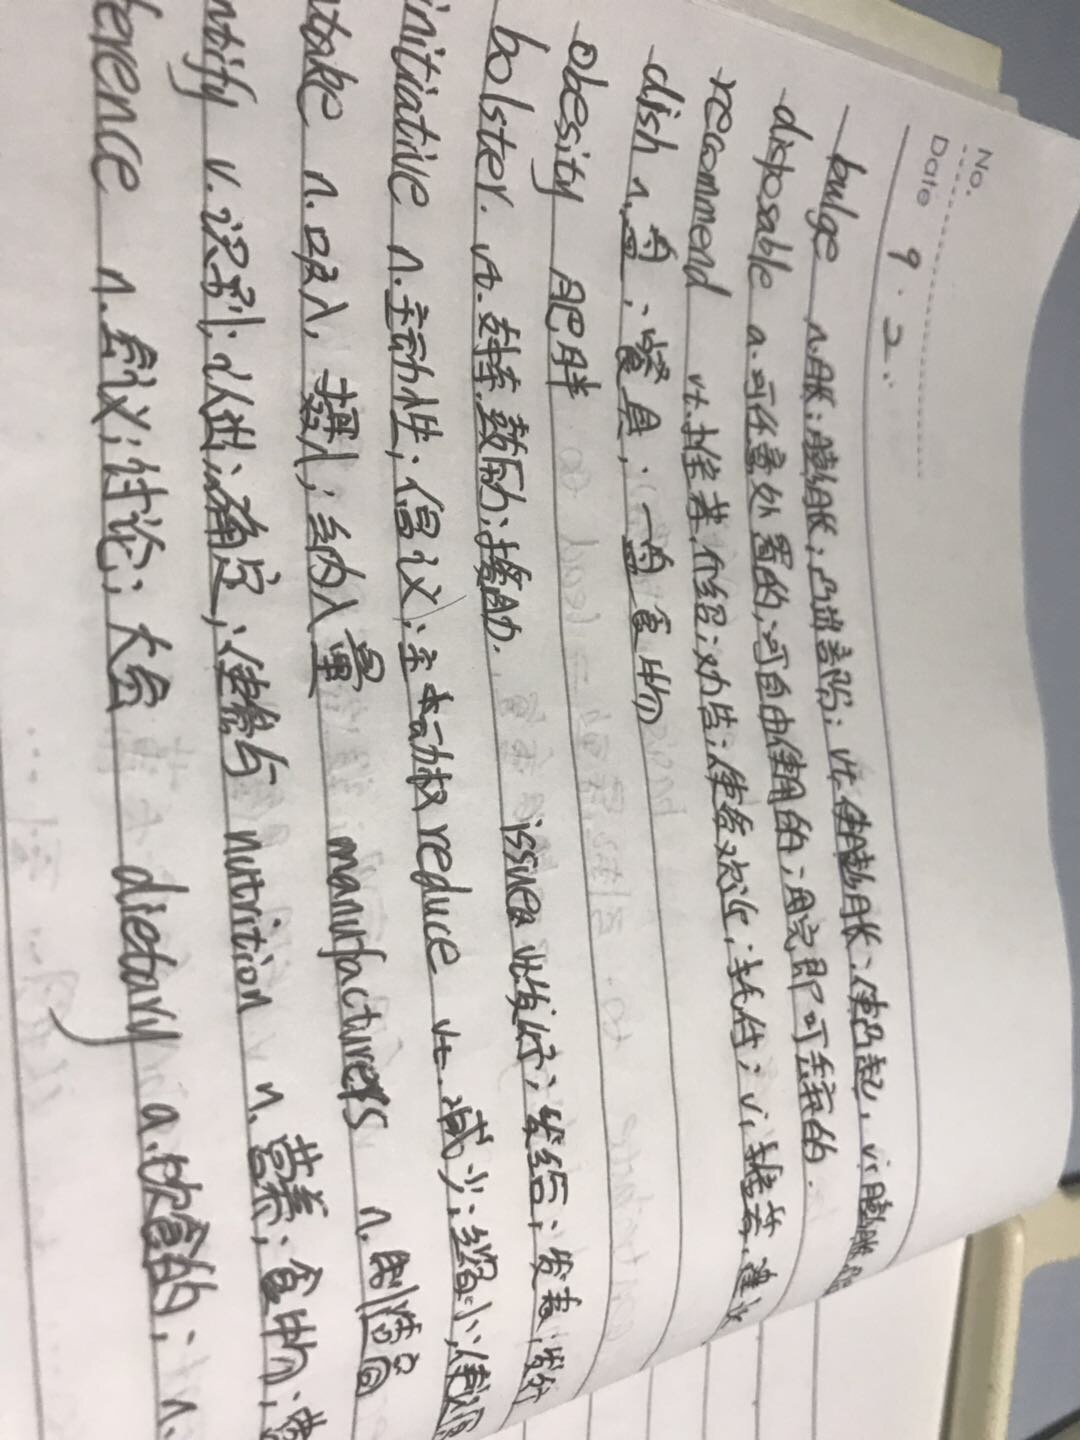 No.
Date 9.2.
bulge n.胀;膨胀;凸出部份;vt.使膨胀,使凸起,vi.膨胀
disposable a.可任意处置的,可自由使用的;用完即可丢弃的.
recommend vt.推荐,介绍;劝告;使受欢迎;托付;vi.推荐,建议
dish n.盘,餐具,一盘食物
obesity 肥胖
bolster. vt.支持,鼓励;援助. issues 发行;发给;发表,发行
initiative n.主动性;倡议;主动权 reduce vt.减少;缩小,使
take n.吸入,摄入;纳入量 manufacturers n.制造商
ntify v.识别;认出;确定;使参与 nutrition n.营养;食物;
ference n.会议;讨论;大会 dietary a.饮食的;n.